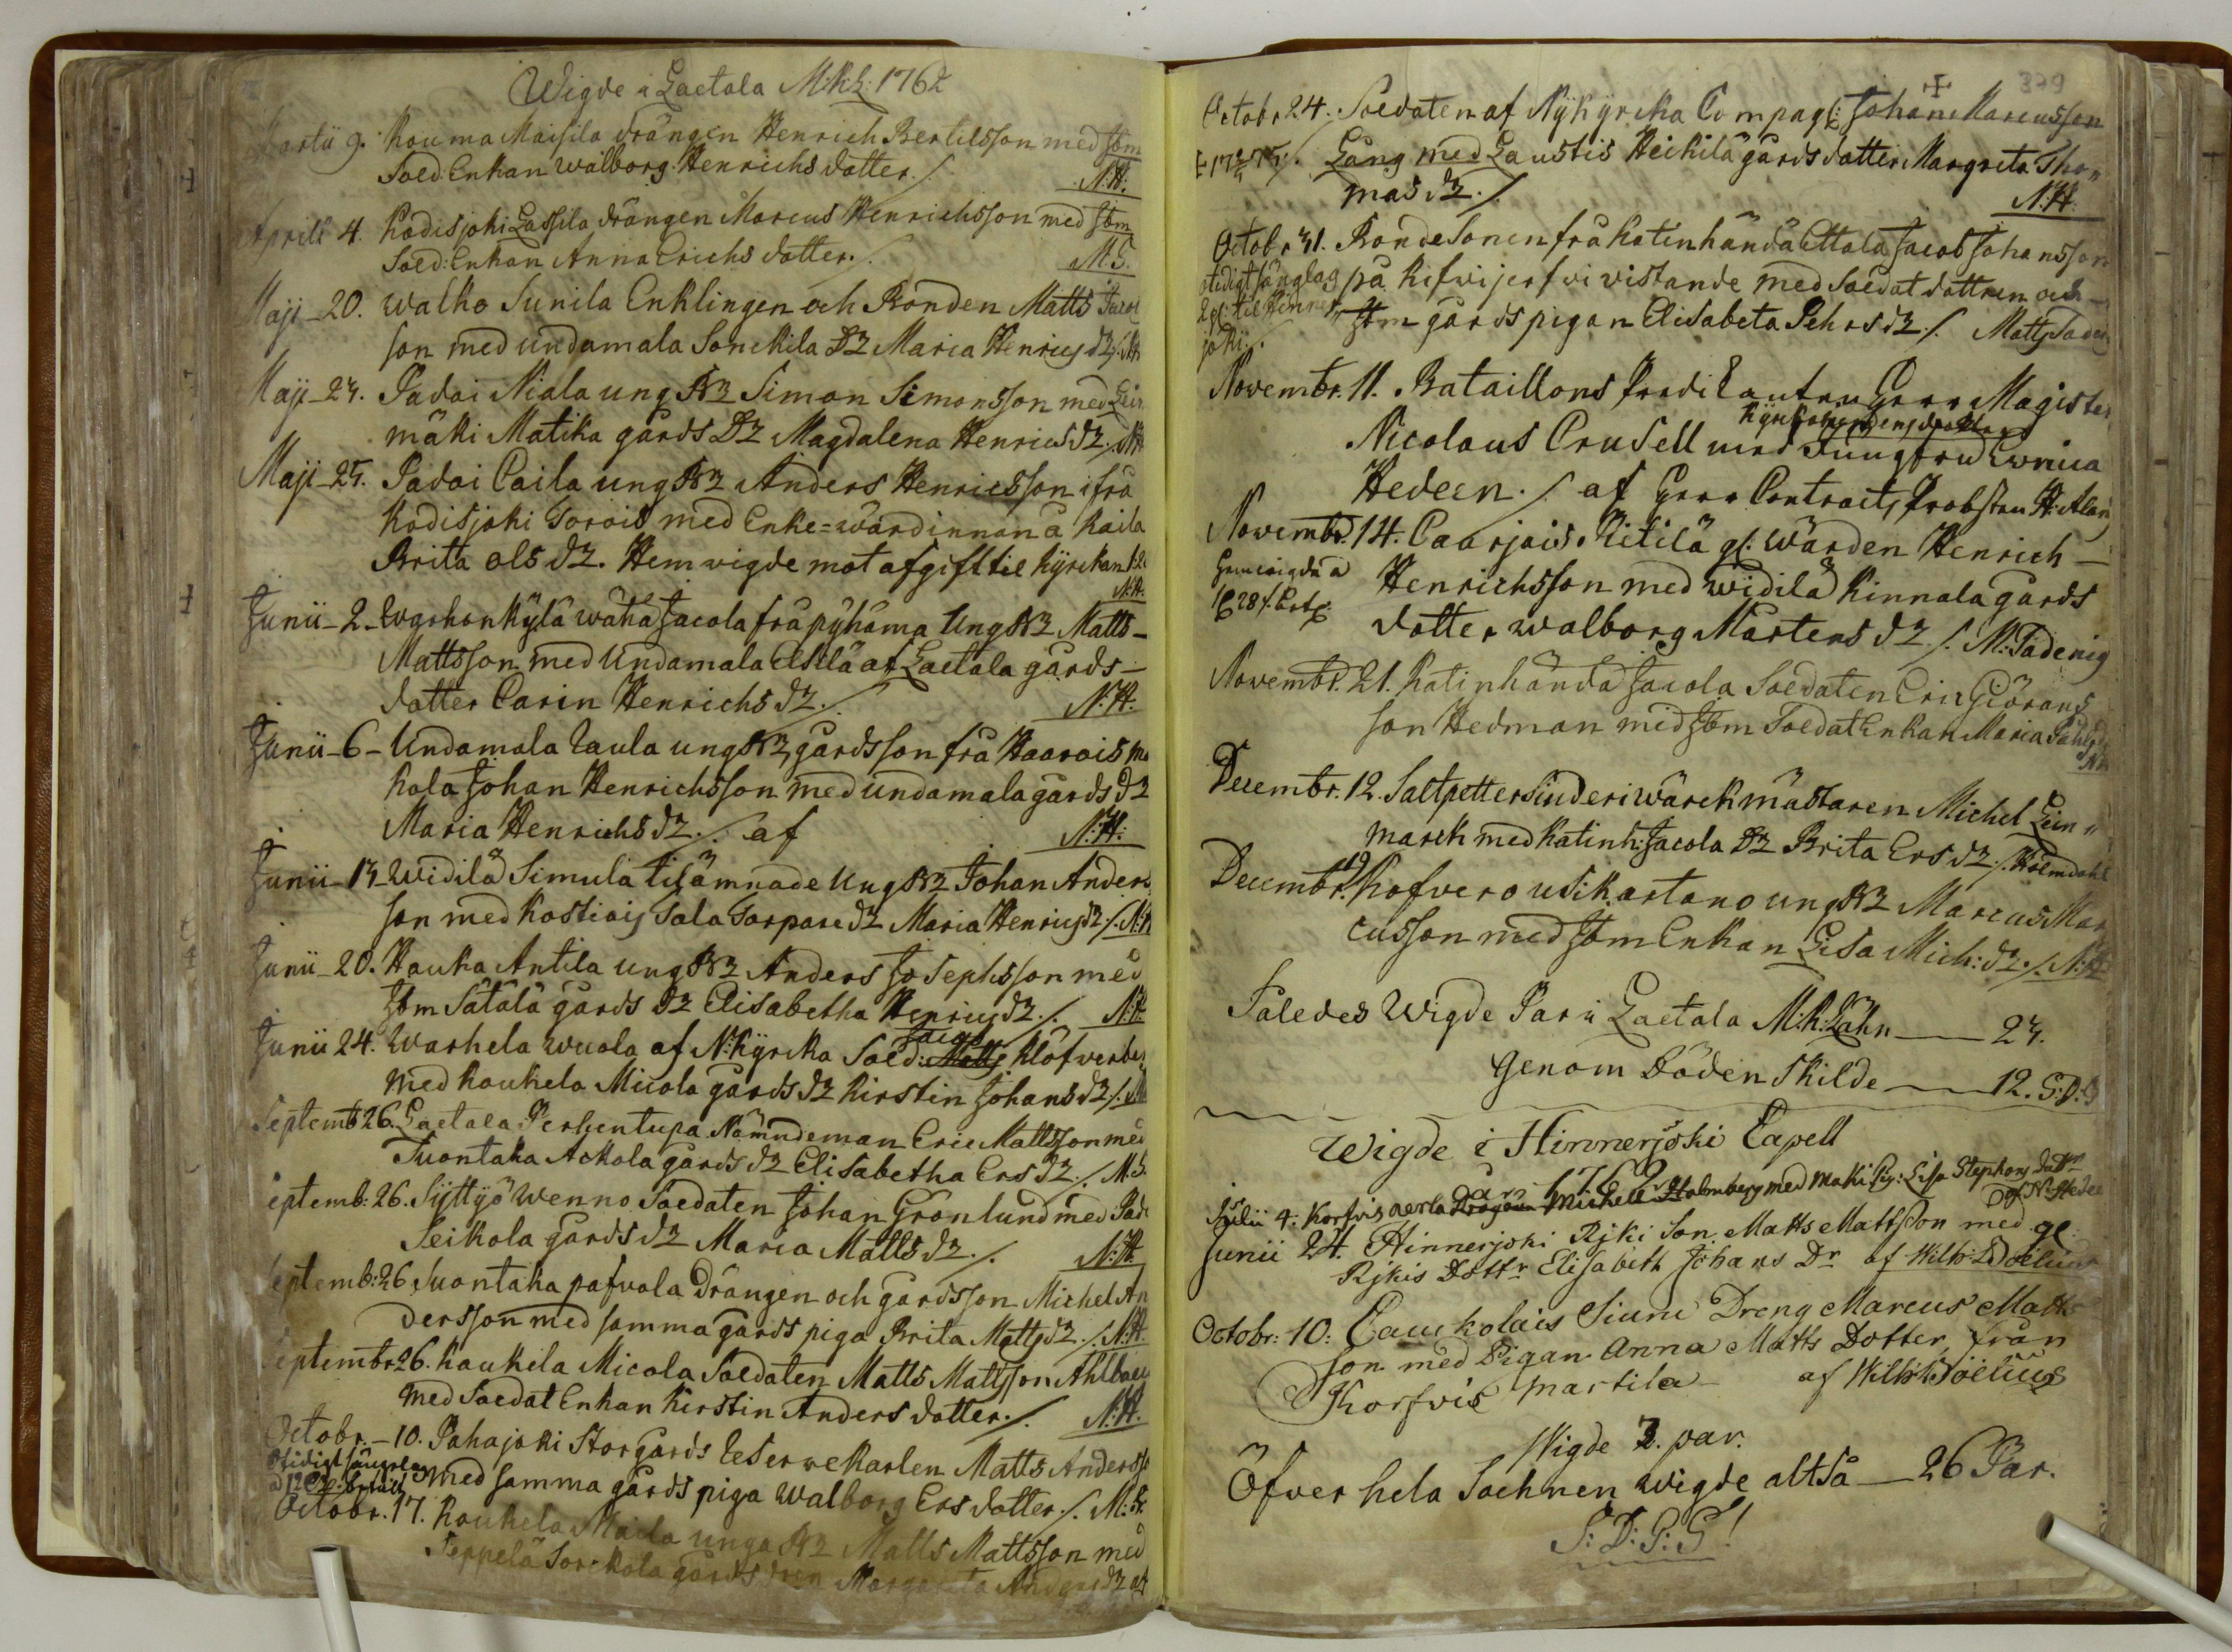 Wigde i Laetala M:K:L: 1762
Martii 9. Kouma Maisila drängen Henrich Bertilsson med jbm
Sold. Enkan Walborg Henrichs dotter ./. N:H:
Aprill 4. Kodisjoki Lassila drängen Marcus Henrichsson med jbm
Sold: Enkan Anna Erichs dotter ./. M:S.
Maji 20. Walko Sunila Enklingen och Bonden Matts Jacobs
son med undamala Sonckila Dr Maria Henrics dr ./.
Maji 24. Padoi Niala ung Br Simon Simonsson med Lein
mäki Matika gårds Dr Magdalena Henrics dr ./. NH
Maji 25. Padoi Caila ung Br Anders Henricsson ifrå
Kodisjoki Torois med Enke-wärdinnan å Kaila
Brita Ols dr. Hemwigde mot afgifl til Kyrckan
N:H:
Junii 2. Erskonkylä Wähä Jacola frå Pyhäma Ung Br Matts
Mattsson med Undamala Elilä af Laetala gårds
dotter Carin Henrichs dr ./. N:H:
Junii 6 Undamala Laula ung Br, gårdsson frå Haarois
kola Johan Henrichsson med Undamala gårds dr
Maria Henrichs dr ./. af N:H:
Junii 13 Widilä Simula tilämnade Ung Br Johan Anders
son med Kostiois Sala Torpare dr Maria Henrics dr ./. N:H
Junii 20. Hauka Antila ung Br Anders Josephsson med
jbm Sätälä gårds dr Elisabetha Henrics dr ./. N:H.
Jacob
Junii 24. Warhela Wuola af N:Kyrcka Sold: Matts Klöfverbe
med Kaukela Micola gårds dr Kirstin Johans dr ./.
Septemb 26. Laetala Perkentupa Nämndeman Eric Mattsson med
Suontaka Ackola gårds dr Elisabetha Ers dr ./. M:S.
Septemb: 26. Syttyö Wenno Soldaten Johan Grönlund med Pad
Seikola gårds dr Maria Matts dr ./. N:H.
Septemb: 26 Suontaka Pafvola Drängen och gårdsson Michel An
dersson med samma gårds piga Brita Matts dr ./. N:H.
Septembr 26. Kaukela Micola Soldaten Matts Mattsson Ahlbaey
med Soldat Enkan Kirstin Anders dotter ./. N:H.
Octobr. 10. Pahajoki Storgårds Reservekarlen Matts Anderss
Otidigt sänglag
med samma gårds piga Walborg Ers dotter ./. M:S.
Octobr. 17. Kaukela Maila unga Br Matts Mattsson med
Seppelä Sorckola gårds dren Margareta Anders dr af
379
Octobr 24. Soldaten af Nykyrcka Compag: Johan Marcusson
Lång med Laustis Heickilä gårds dotter Margreta Tho,,
mas dr ./. N:H.
Octobr 31. Bonde Sonen frå Katinhändä Ettala Jacob Johansson
otidigt sänglag på Kifwijerfwi vistande med Soldat dottren och
Hinner jbm gårds pigan Elisabeta Pehrs dr ./. Matts Tadenig
joki ./.
Novembr. 11. Bataillons Predikanten Herr Magister
Nicolaus Crusell med Jungfru Ewrica
Hedeen ./. af Herr Contracts Probsten H: Alan
Novembr. 14. Caarjois Ritilä gl: Wärden Henrich
Hemwigda à Henrichsson med Widilä Kinnala gårds
dotter Walborg Mårtens dr ./. M: Tadenig
Novembr. 21. Katinhändä Jacola Soldaten Eric Giörans
son Hedman med jbm Soldat Enkan Maria Påhls dr
Decembr. 12. Saltpetter Siuderi Wärckmästaren Michel Lein,,
marck med Katinh: Jacola Dr Brita Ers dr ./. Holmdahl
Decembr. 19 Kofvero Usikartano ung Br Marcus Mar
cusson med jbm Enkan Lisa Mich: dr ./. N:H
Saledes Wigde Par i Laetala M:K:Lähn 24.
Genom Döden Skilde 12. S:D:G
Wigde i Hinnerjoki Capell
år 1762
Julii 4: Korfvis Aerla Dragoun Michell Holmberg med Maki Pig: Lisa Stephans Dottr
af N: Hedee
Junii 24. Hinnerjoki Rjki Son. Matts Mattsson med gl.
Rjkis Dottr Elisabeth Johans Dr af Wilh: Idoelius
Octobr: 10: Cauckolais Siuni Dreng Marcus Matts
son med Pigan Anna Matts Dotter, från
Korfvis Martila af Wilh: Idoelius
Wigde 3. par.
Öfver hela Sochnen wigde altså 26 Par.
S:D:G:G!